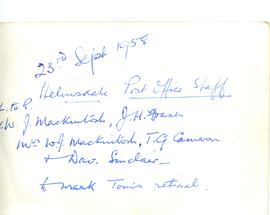 23rd Sept 1958
Helmsdale Post Office Staff
L. to R.
W. J. Mackintosh, J. H. Fraser
Mrs W J Mackintosh, T. G Cameron
& Dav. Sinclair
to mark Tom's retiral.